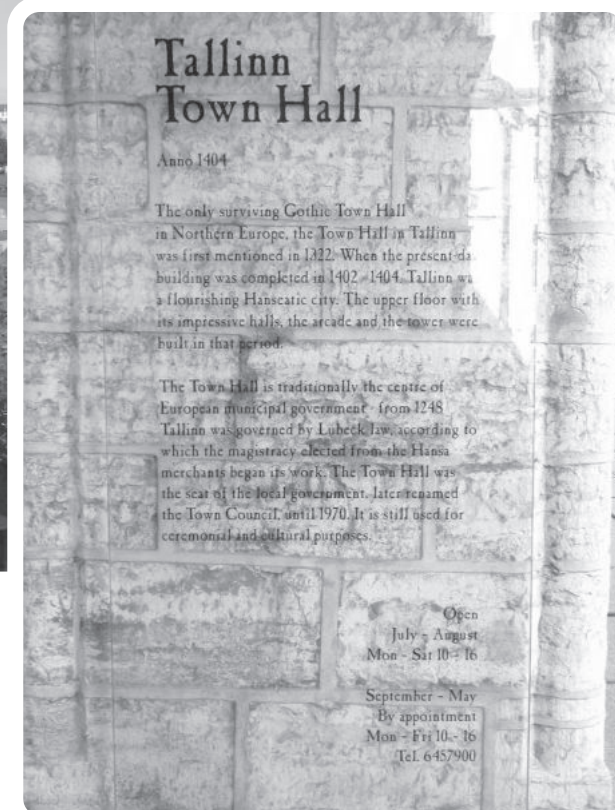 Tallinn
Town Hall
Anno 1404
The only surviving Gothic Town Hall
in Northern Europe, the Town Hall in Tallinn
was first mentioned in 1322. When the present-da
building was completed in 1402 - 1404, Tallinn wa
a flourishing Hanseatic city. The upper floor with
its impressive halls, the arcade and the tower were
built in that period.
The Town Hall is traditionally the centre of
European municipal government - from 1248
Tallinn was governed by Lubeck law, according to
which the magistracy elected from the Hansa
merchants began its work. The Town Hall was
the seat of the local government, later renamed
the Town Council, until 1970. It is still used for
ceremonial and cultural purposes.
Open
July - August
Mon - Sat 10 - 16
September - May
By appointment
Mon - Fri 10 - 16
Tel. 6457900